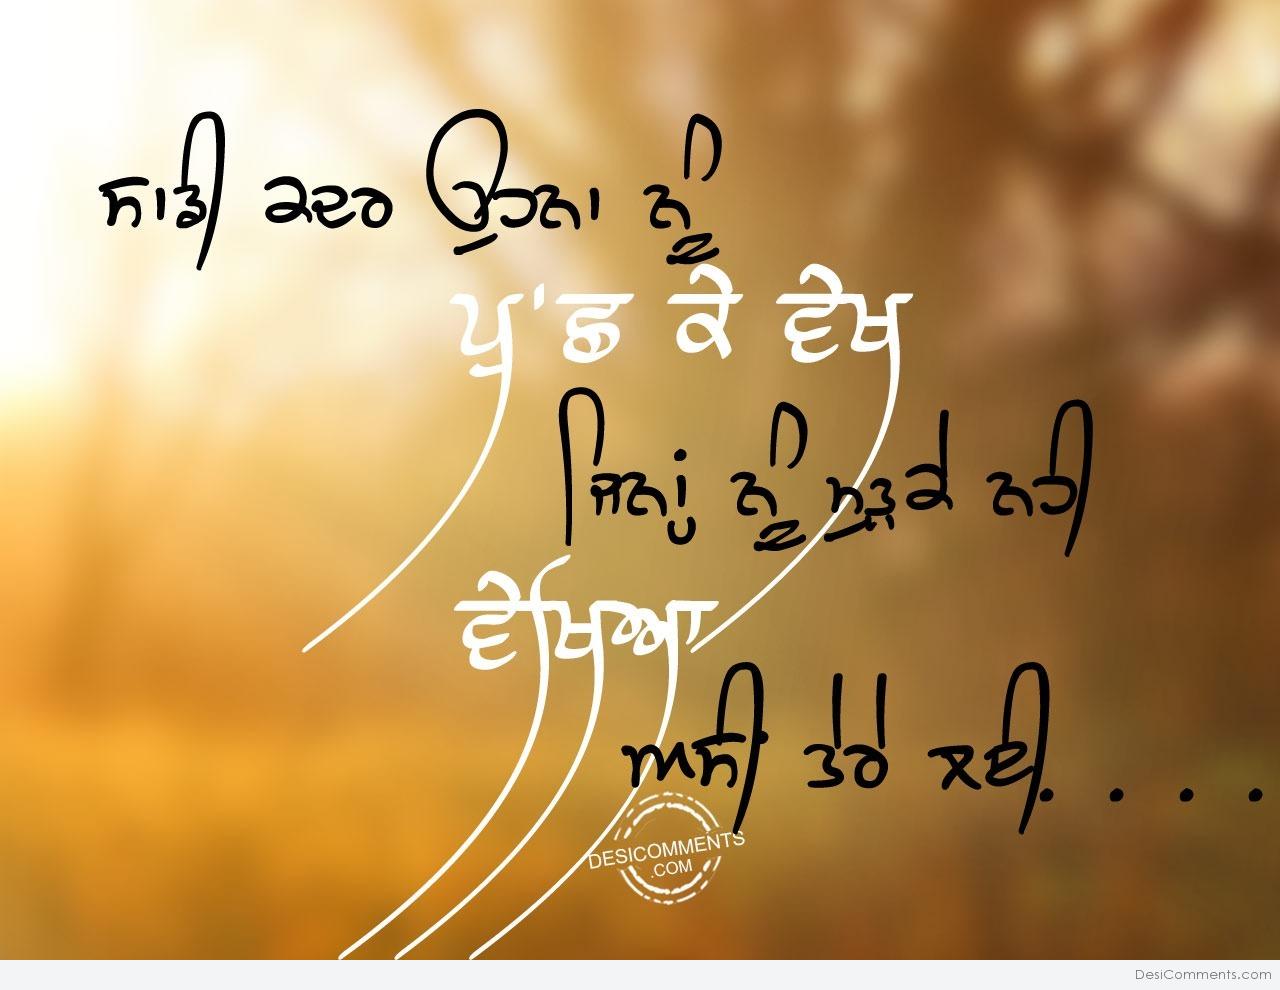 ਸਾਡੀ ਕਦਰ ਉਹਨਾ ਨੂੰ
ਪੁ'ਛ ਕੇ ਵੇਖ
ਜਿਨਾਂ ਨੂੰ ਮੁੜਕੇ ਨਹੀ
ਵੇਖਿਆ
ਅਸੀਂ ਤੇਰੇ ਲਈ. . . .
DESICOMMENTS
.COM
DesiComments.com